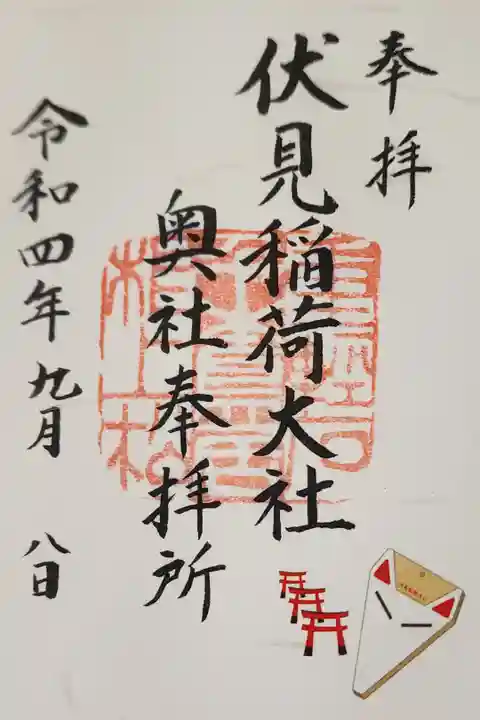 奉拝
伏見稲荷大社
奥社奉拝所
令和四年九月八日